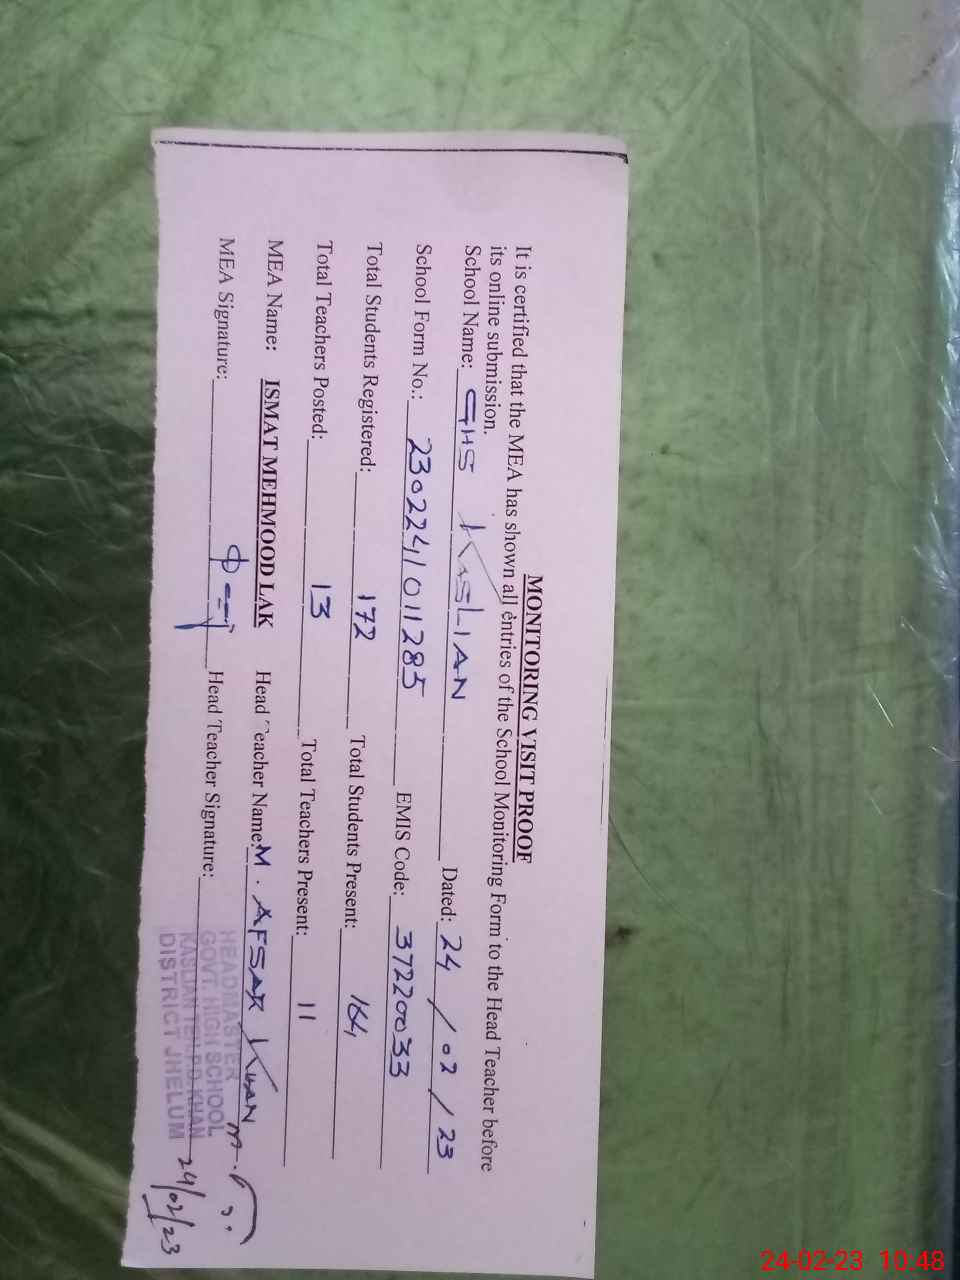 MONITORING VISIT PROOF
It is certified that the MEA has shown all entries of the School Monitoring Form to the Head Teacher before
its online submission.
School Name: GHS KASLIAN Dated: 24/02/23
School Form No.: 2302241011285 EMIS Code: 37220033
Total Students Registered: 172 Total Students Present: 164
Total Teachers Posted: 13 Total Teachers Present: 11
MEA Name: ISMAT MEHMOOD LAK Head Teacher Name: M. AFSAR KHAN
MEA Signature: Head Teacher Signature:
HEADMASTER
GOVT. HIGH SCHOOL
KASLIAN TEH P.D.KHAN
DISTRICT JHELUM
24/02/23
24-02-23 10:48